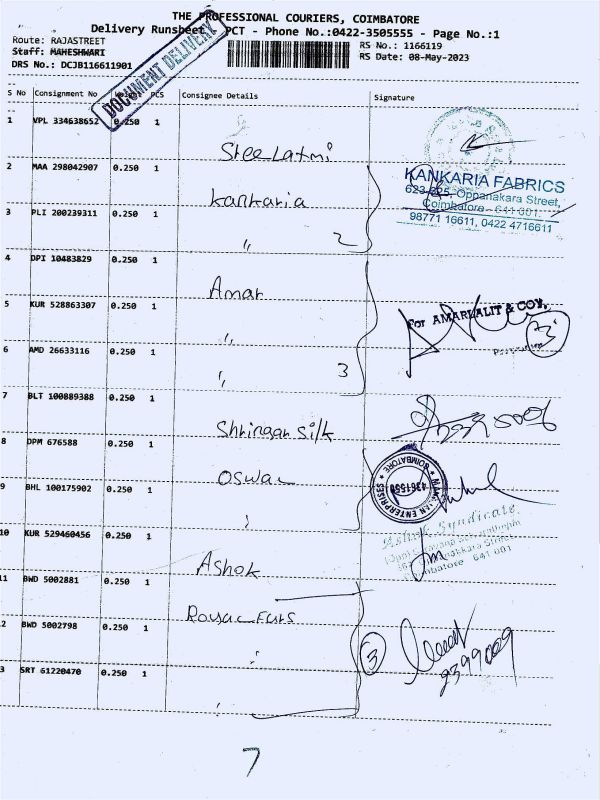 THE PROFESSIONAL COURIERS, COIMBATORE
Delivery Runsheet PCT - Phone No.:0422-3505555 - Page No.:1
Route: RAJASTREET
Staff: MAHESHWARI
DRS No.: DCJB116611901
RS No.: 1166119
RS Date: 08-May-2023
DOCUMENT DELIVERY
S No Consignment No Weight PCS Consignee Details Signature
1 VPL 334638652 0.250 1
Sree Laxmi
2 MAA 298042907 0.250 1 Kankaria
KANKARIA FABRICS
623-625, Oppanakara Street,
Coimbatore - 641 001.
98771 16611, 0422 4716611
3 PLI 200239311 0.250 1
" 2
4 DPI 10483829 0.250 1
Amar
5 KUR 528863307 0.250 1
"
For AMARLALIT & COY.
3
6 AMD 26633116 0.250 1
" 3
7 BLT 100889388 0.250 1
Shringar silk
8 DPM 676588 0.250 1
Oswal
ENTERPRISES
COIMBATORE
9 BHL 100175902 0.250 1
"
Ashok Syndicate
Coimbatore 641 001
10 KUR 529460456 0.250 1
Ashok
11 BWD 5002881 0.250 1
Royal Furs
2 BWD 5002798 0.250 1
"
3
2399009
3 SRT 61220470 0.250 1
"
7